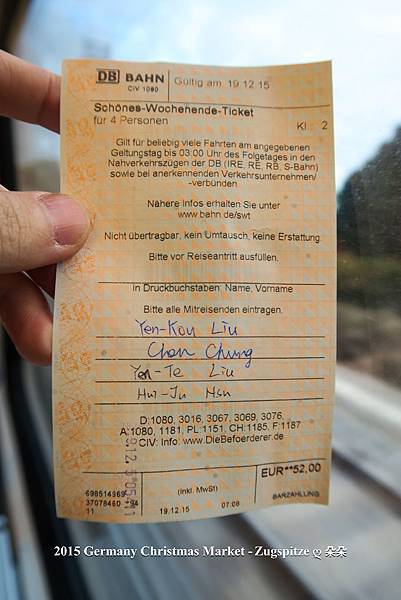 DB BAHN Gültig am 19.12.15
CIV 1080
Schönes-Wochenende-Ticket
für 4 Personen Kl.: 2
Gilt für beliebig viele Fahrten am angegebenen
Geltungstag bis 03:00 Uhr des Folgetages in den
Nahverkehrszügen der DB (IRE, RE, RB, S-Bahn)
sowie bei anerkennenden Verkehrsunternehmen/
-verbünden.
Nähere Infos erhalten Sie unter
www.bahn.de/swt
Nicht übertragbar, kein Umtausch, keine Erstattung.
Bitte vor Reiseantritt ausfüllen.
in Druckbuchstaben: Name, Vorname
Bitte alle Mitreisenden eintragen.
Yen-Kou Liu
Chen Chung
Yen-Te Liu
Hui-Ju Hsu
D:1080, 3016, 3067, 3069, 3076,
A:1080, 1181, PL:1151, CH:1185, F:1187
CIV: Info: www.DieBefoerderer.de
EUR**52,00
698514969 (inkl. MwSt) BARZAHLUNG
37078460 94
11 19.12.15 07:08
2015 Germany Christmas Market - Zugspitze ღ 朵朵